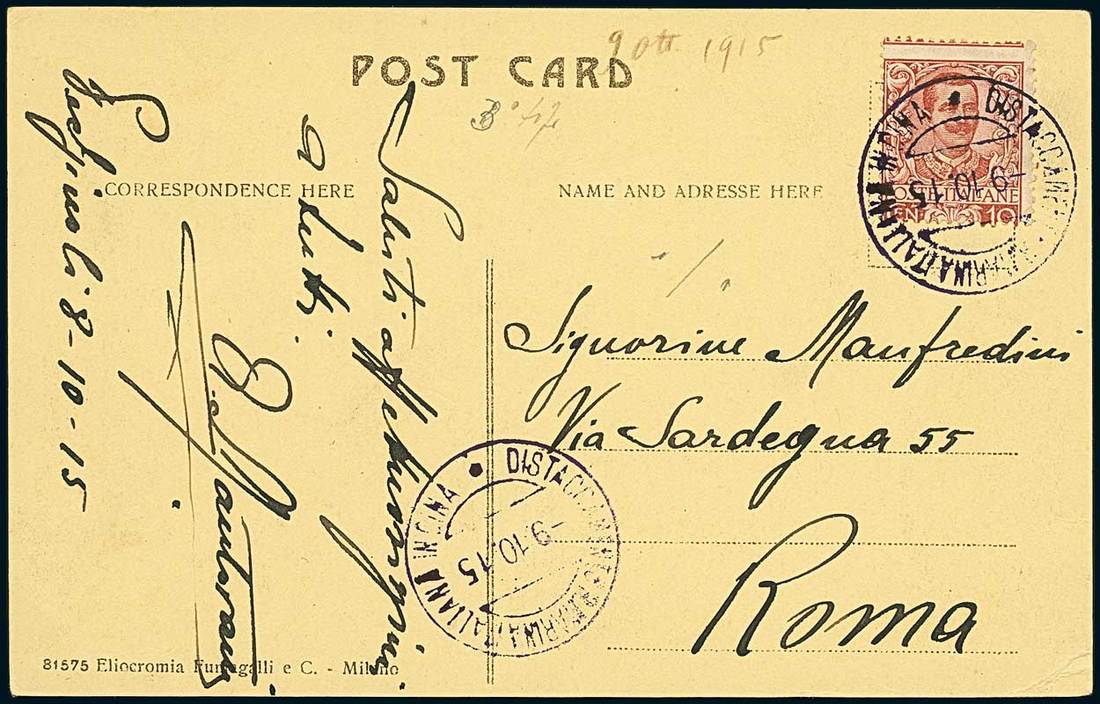 9 Ott. 1915
POST CARD
CORRESPONDENCE HERE
NAME AND ADRESSE HERE
POSTE ITALIANE
CENT. 10
DISTACCAMENTO R. MARINA ITALIANA IN CINA
-9.10.15
Saluti affettuosissimi
a tutti.
Pechino li 8-10-15
Signorine Manfredini
Via Sardegna 55
Roma
DISTACCAMENTO R. MARINA ITALIANA IN CINA
-9.10.15
81575 Eliocromia Fumagalli e C. - Milano